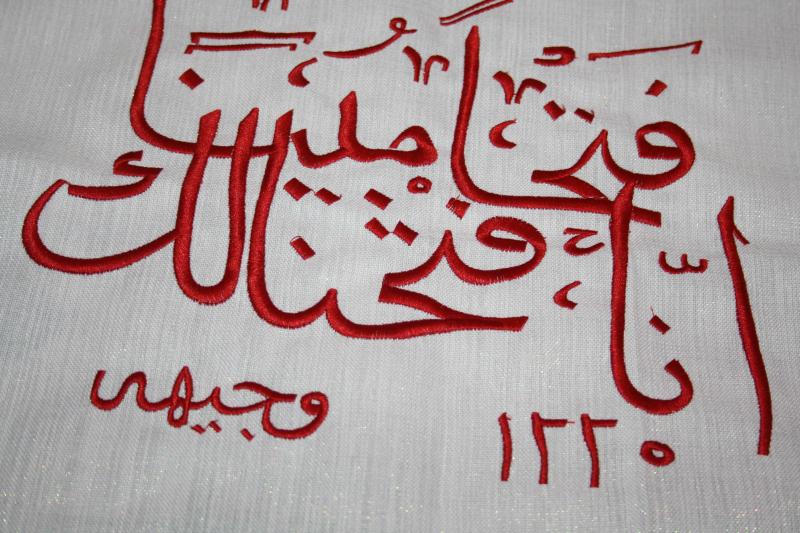 انّا فتحنا لك
فتحاً مبينا
وجيهى
١٢٢٥